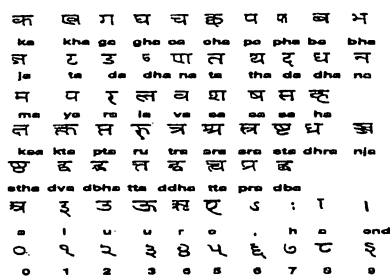 क ख ग घ च छ प फ ब भ
ka kha ga gha ca cha pa pha ba bha
ज ट त थ द ध न
ja ta da dha na ta tha da dha na
म य र ल व श ष स ह
ma ya ra la va sa sa sa ha
रु त्र
ksa kta pta ru tra sra sta dhra nja
द्व त्त प्र
stha dva dbha tta ddha tta pra dba
अ इ उ ऊ ऋ ए ऽ : ा ।
a i u u r e , h a end
० १ २ ३ ४ ५ ६ ७ ८ ९
0 1 2 3 4 5 6 7 8 9